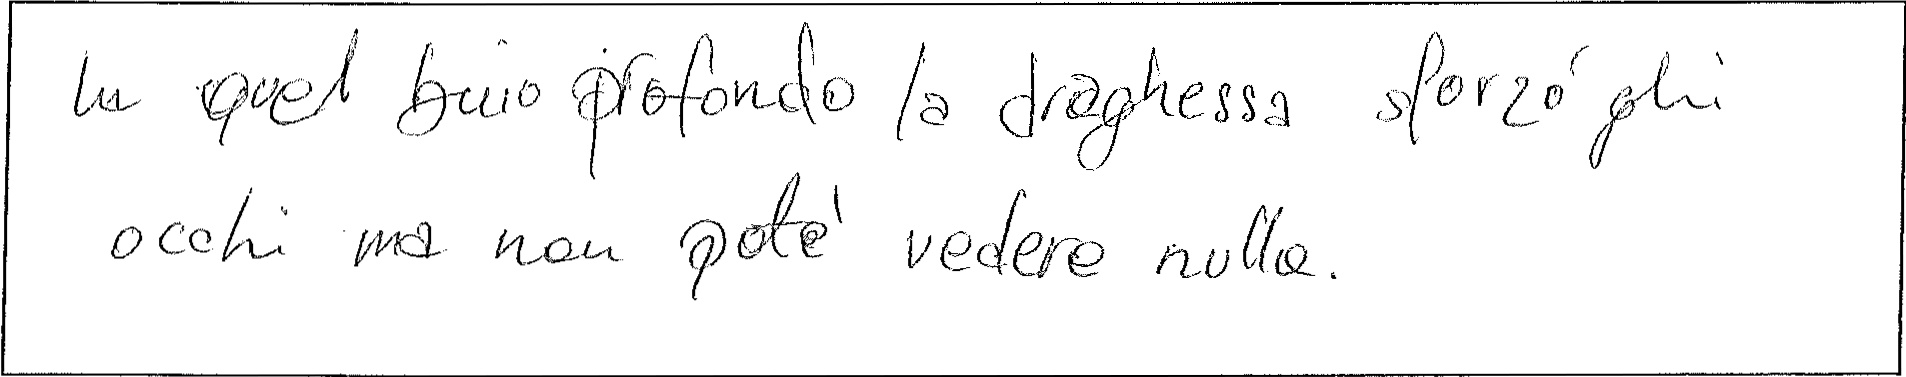 In quel buio profondo la draghessa sforzó ghi
occhi ma non poté vedere nulla.